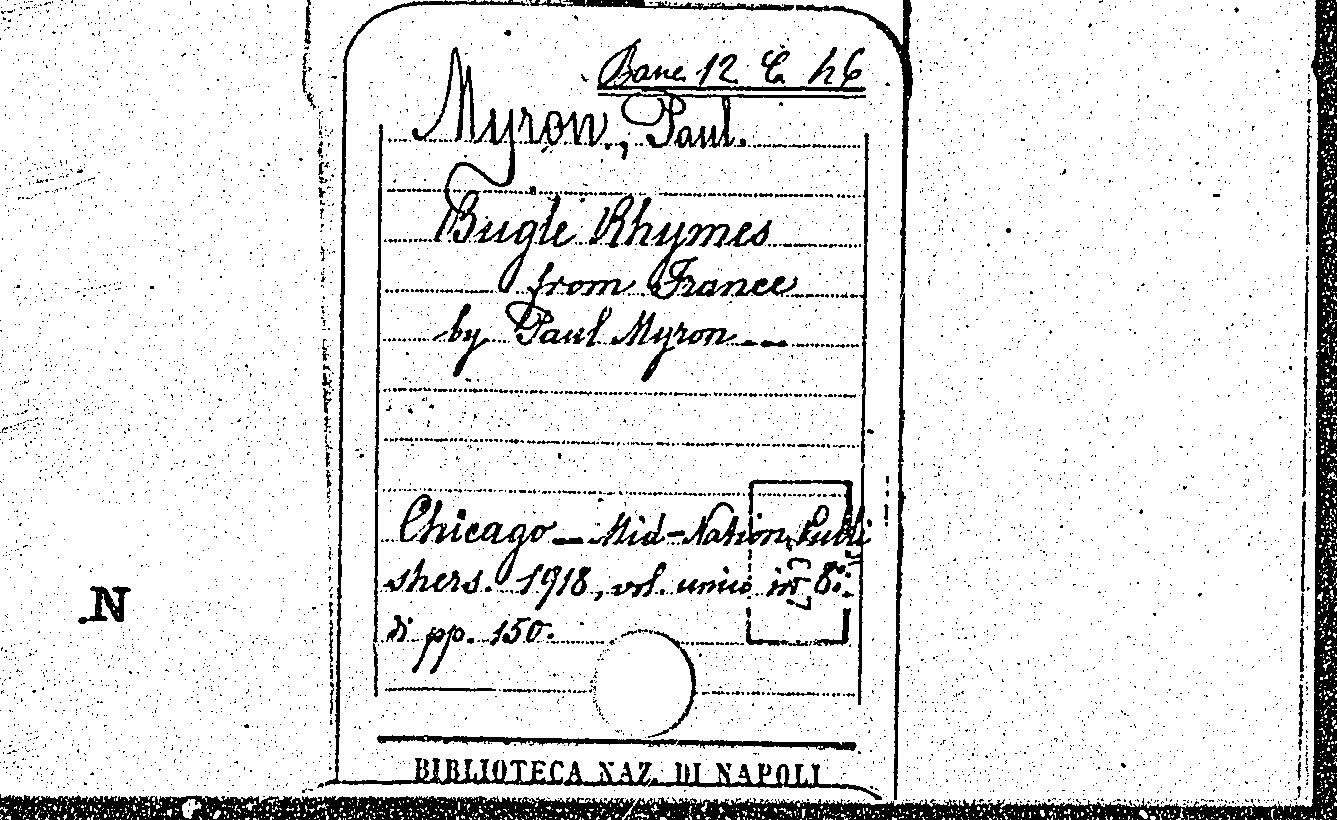 Banc. 12 C h6
Myron., Paul.
Bugle Rhymes
from France
by Paul Myron ---
Chicago — Mid-Nation Publi
shers. 1918, vol. unico in 8.º
di pp. 150.
.N
BIBLIOTECA NAZ. DI NAPOLI